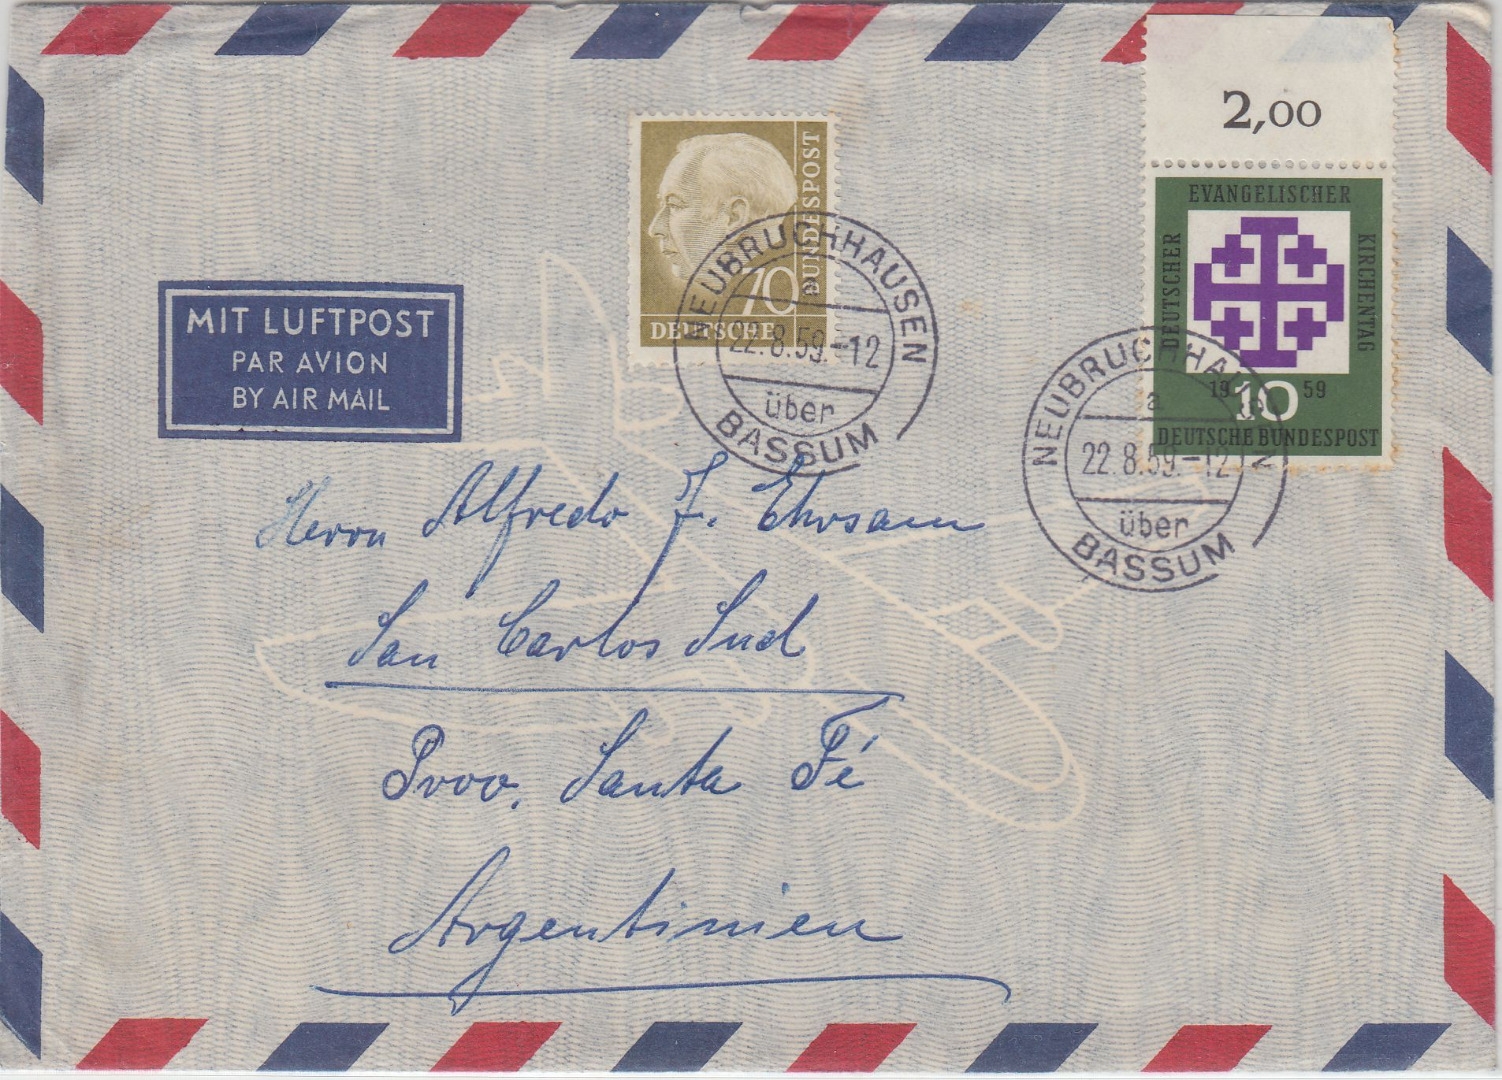 2,00
EVANGELISCHER
DEUTSCHER
KIRCHENTAG
1959
10
DEUTSCHE BUNDESPOST
BUNDESPOST
70
DEUTSCHE
NEUBRUCHHAUSEN
a
22.8.59.-12
über
BASSUM
NEUBRUCHHAUSEN
a
22.8.59.-12
über
BASSUM
MIT LUFTPOST
PAR AVION
BY AIR MAIL
Herrn Alfredo J. Ehrsam
San Carlos Sud
Prov. Santa Fé
Argentinien